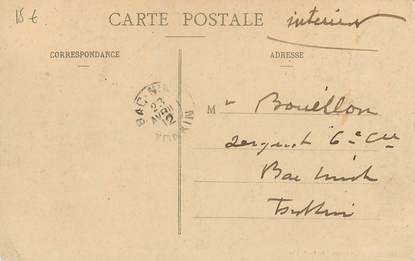 15 €
CARTE POSTALE
intérieur
CORRESPONDANCE
ADRESSE
BAC-NINH
23
AVRIL
12
TONKIN
Mr Bouëllon
sergent 6e Cie
Bac Ninh
Tonkin